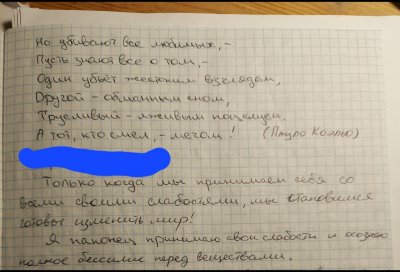 Но убивают все любимых, -
Пусть знают все о том, -
Один убьёт жестоким взглядом,
Другой - обманным сном,
Трусливый - лживым поцелуем,
А тот, кто смел, - мечом! (Пауло Коэльо)
Только когда мы принимаем себя со
всеми своими слабостями, мы становимся
готовы изменить мир!
Я наконец принимаю свои слабости и осознаю
полное бессилие перед веществами.